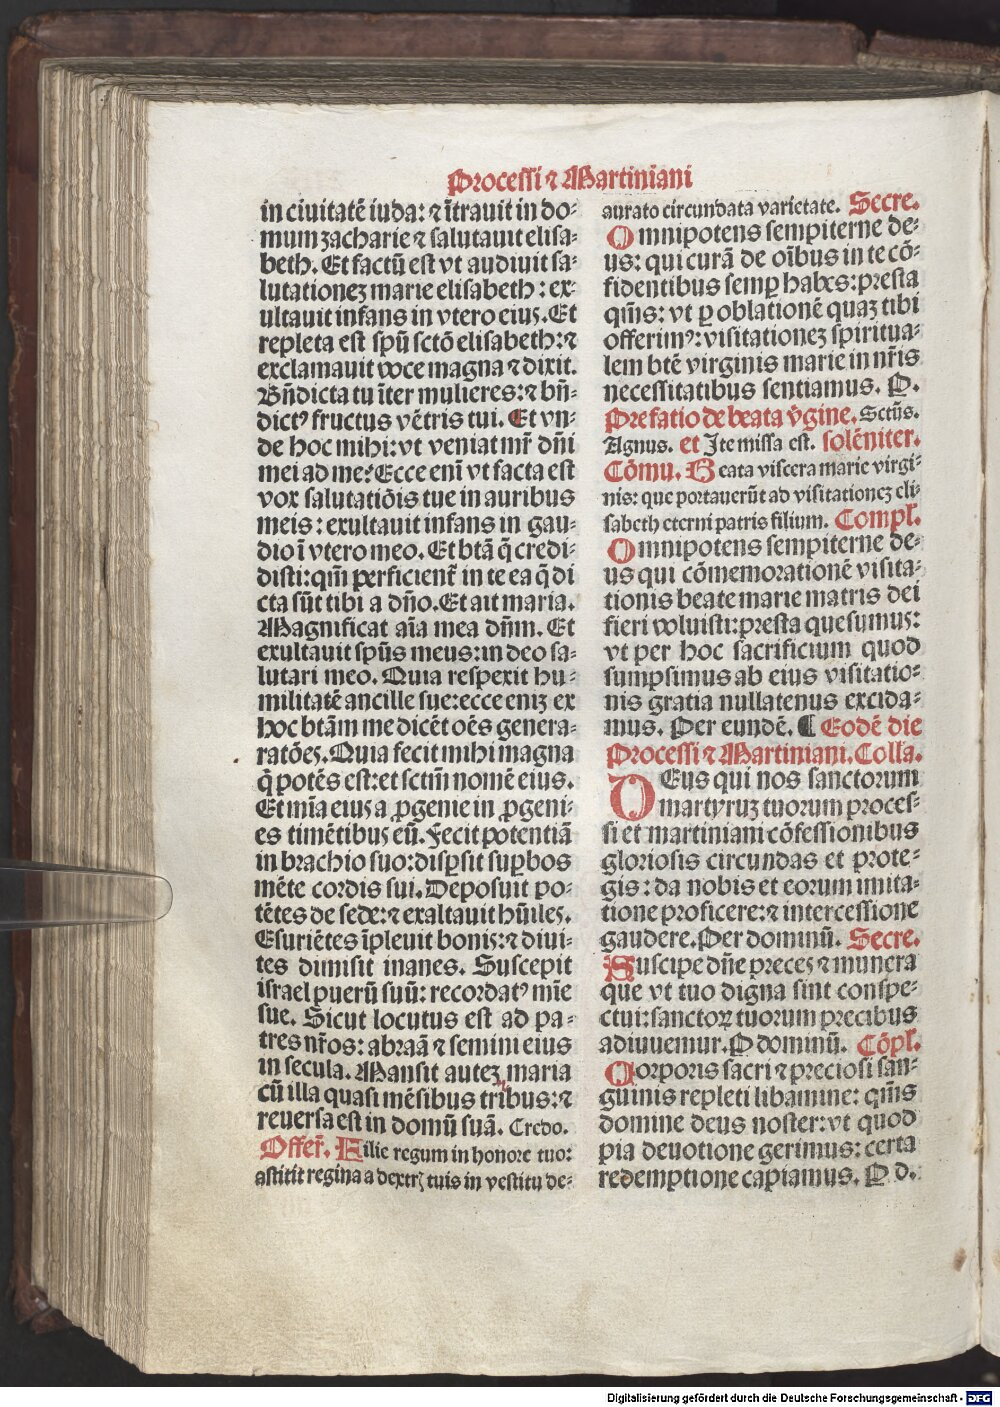 Processi ⁊ Martiniani
in ciuitatē iuda: ⁊ ītrauit in do⸗
mum zacharie ⁊ salutauit elisa⸗
beth. Et factū est vt audiuit sa⸗
lutationeꝫ marie elisabeth: ex⸗
ultauit infans in vtero eius. Et
repleta est spū sctō elisabeth: ⁊
exclamauit voce magna ⁊ dixit.
Bn̄dicta tu īter mulieres: ⁊ bn̄⸗
dictꝰ fructus vētris tui. Et vn⸗
de hoc mihi: vt veniat mr̄ dn̄i
mei ad me? Ecce enī vt facta est
vox salutatiōis tue in auribus
meis: exultauit infans in gau⸗
dio ī vtero meo. Et btā q̄ credi⸗
disti: qm̄ perficient̄ in te ea q̄ di
cta sūt tibi a dn̄o. Et ait maria.
Magnificat aīa mea dn̄m. Et
exultauit spūs meus: in deo sa⸗
lutari meo. Quia respexit hu⸗
militatē ancille sue: ecce eniꝫ ex
hoc btām me dicēt oēs genera⸗
ratōes. Quia fecit mihi magna
q̄ potēs est: et sctm̄ nomē eius.
Et mīa eius a ꝓgenie in ꝓgeni⸗
es timētibus eū. Fecit potentiā
in brachio suo: disꝑsit suꝑbos
mēte cordis sui. Deposuit po⸗
tētes de sede: ⁊ exaltauit hūiles.
Esuriētes īpleuit bonis: ⁊ diui⸗
tes dimisit inanes. Suscepit
israel puerū suū: recordatꝰ mīe
sue. Sicut locutus est ad pa⸗
tres nr̄os: abraā ⁊ semini eius
in secula. Mansit auteꝫ maria
cū illa quasi mēsibus tribus: ⁊
reuersa est in domū suā. Credo.
Offer̄. Filie regum in honore tuo:
astitit regina a dextrꝭ tuis in vestitu de⸗
aurato circundata varietate. Secre.
Omnipotens sempiterne de⸗
us: qui curā de oībus in te cō⸗
fidentibus semꝑ habes: presta
qm̄s: vt ꝑ oblationē quaꝫ tibi
offerimꝰ: visitationeꝫ spiritua⸗
lem btē virginis marie in nr̄is
necessitatibus sentiamus. P.
Prefatio de beata v̄gine. Sctūs.
Agnus. et Ite missa est. solēniter.
Cōmu. Beata viscera marie virgi⸗
nis: que portauerūt ad visitationeꝫ eli⸗
sabeth eterni patris filium. Compl̄.
Omnipotens sempiterne de⸗
us qui cōmemorationē visita⸗
tionis beate marie matris dei
fieri voluisti: presta quesumus:
vt per hoc sacrificium quod
sumpsimus ab eius visitatio⸗
nis gratia nullatenus excida⸗
mus. Per eundē. ¶ Eodē die
Processi ⁊ Martiniani. Colla.
DEus qui nos sanctorum
martyruꝫ tuorum proces⸗
si et martiniani cōfessionibus
gloriosis circundas et prote⸗
gis: da nobis et eorum imita⸗
tione proficere: ⁊ intercessione
gaudere. Per dominū. Secre.
Suscipe dn̄e preces ⁊ munera
que vt tuo digna sint conspe⸗
ctui: sanctoꝝ tuorum precibus
adiuuemur. P dominū. Cōpl̄.
Corporis sacri ⁊ preciosi san⸗
guinis repleti libamine: qm̄s
domine deus noster: vt quod
pia deuotione gerimus: certa
redemptione capiamus. P d.
Digitalisierung gefördert durch die Deutsche Forschungsgemeinschaft - DFG